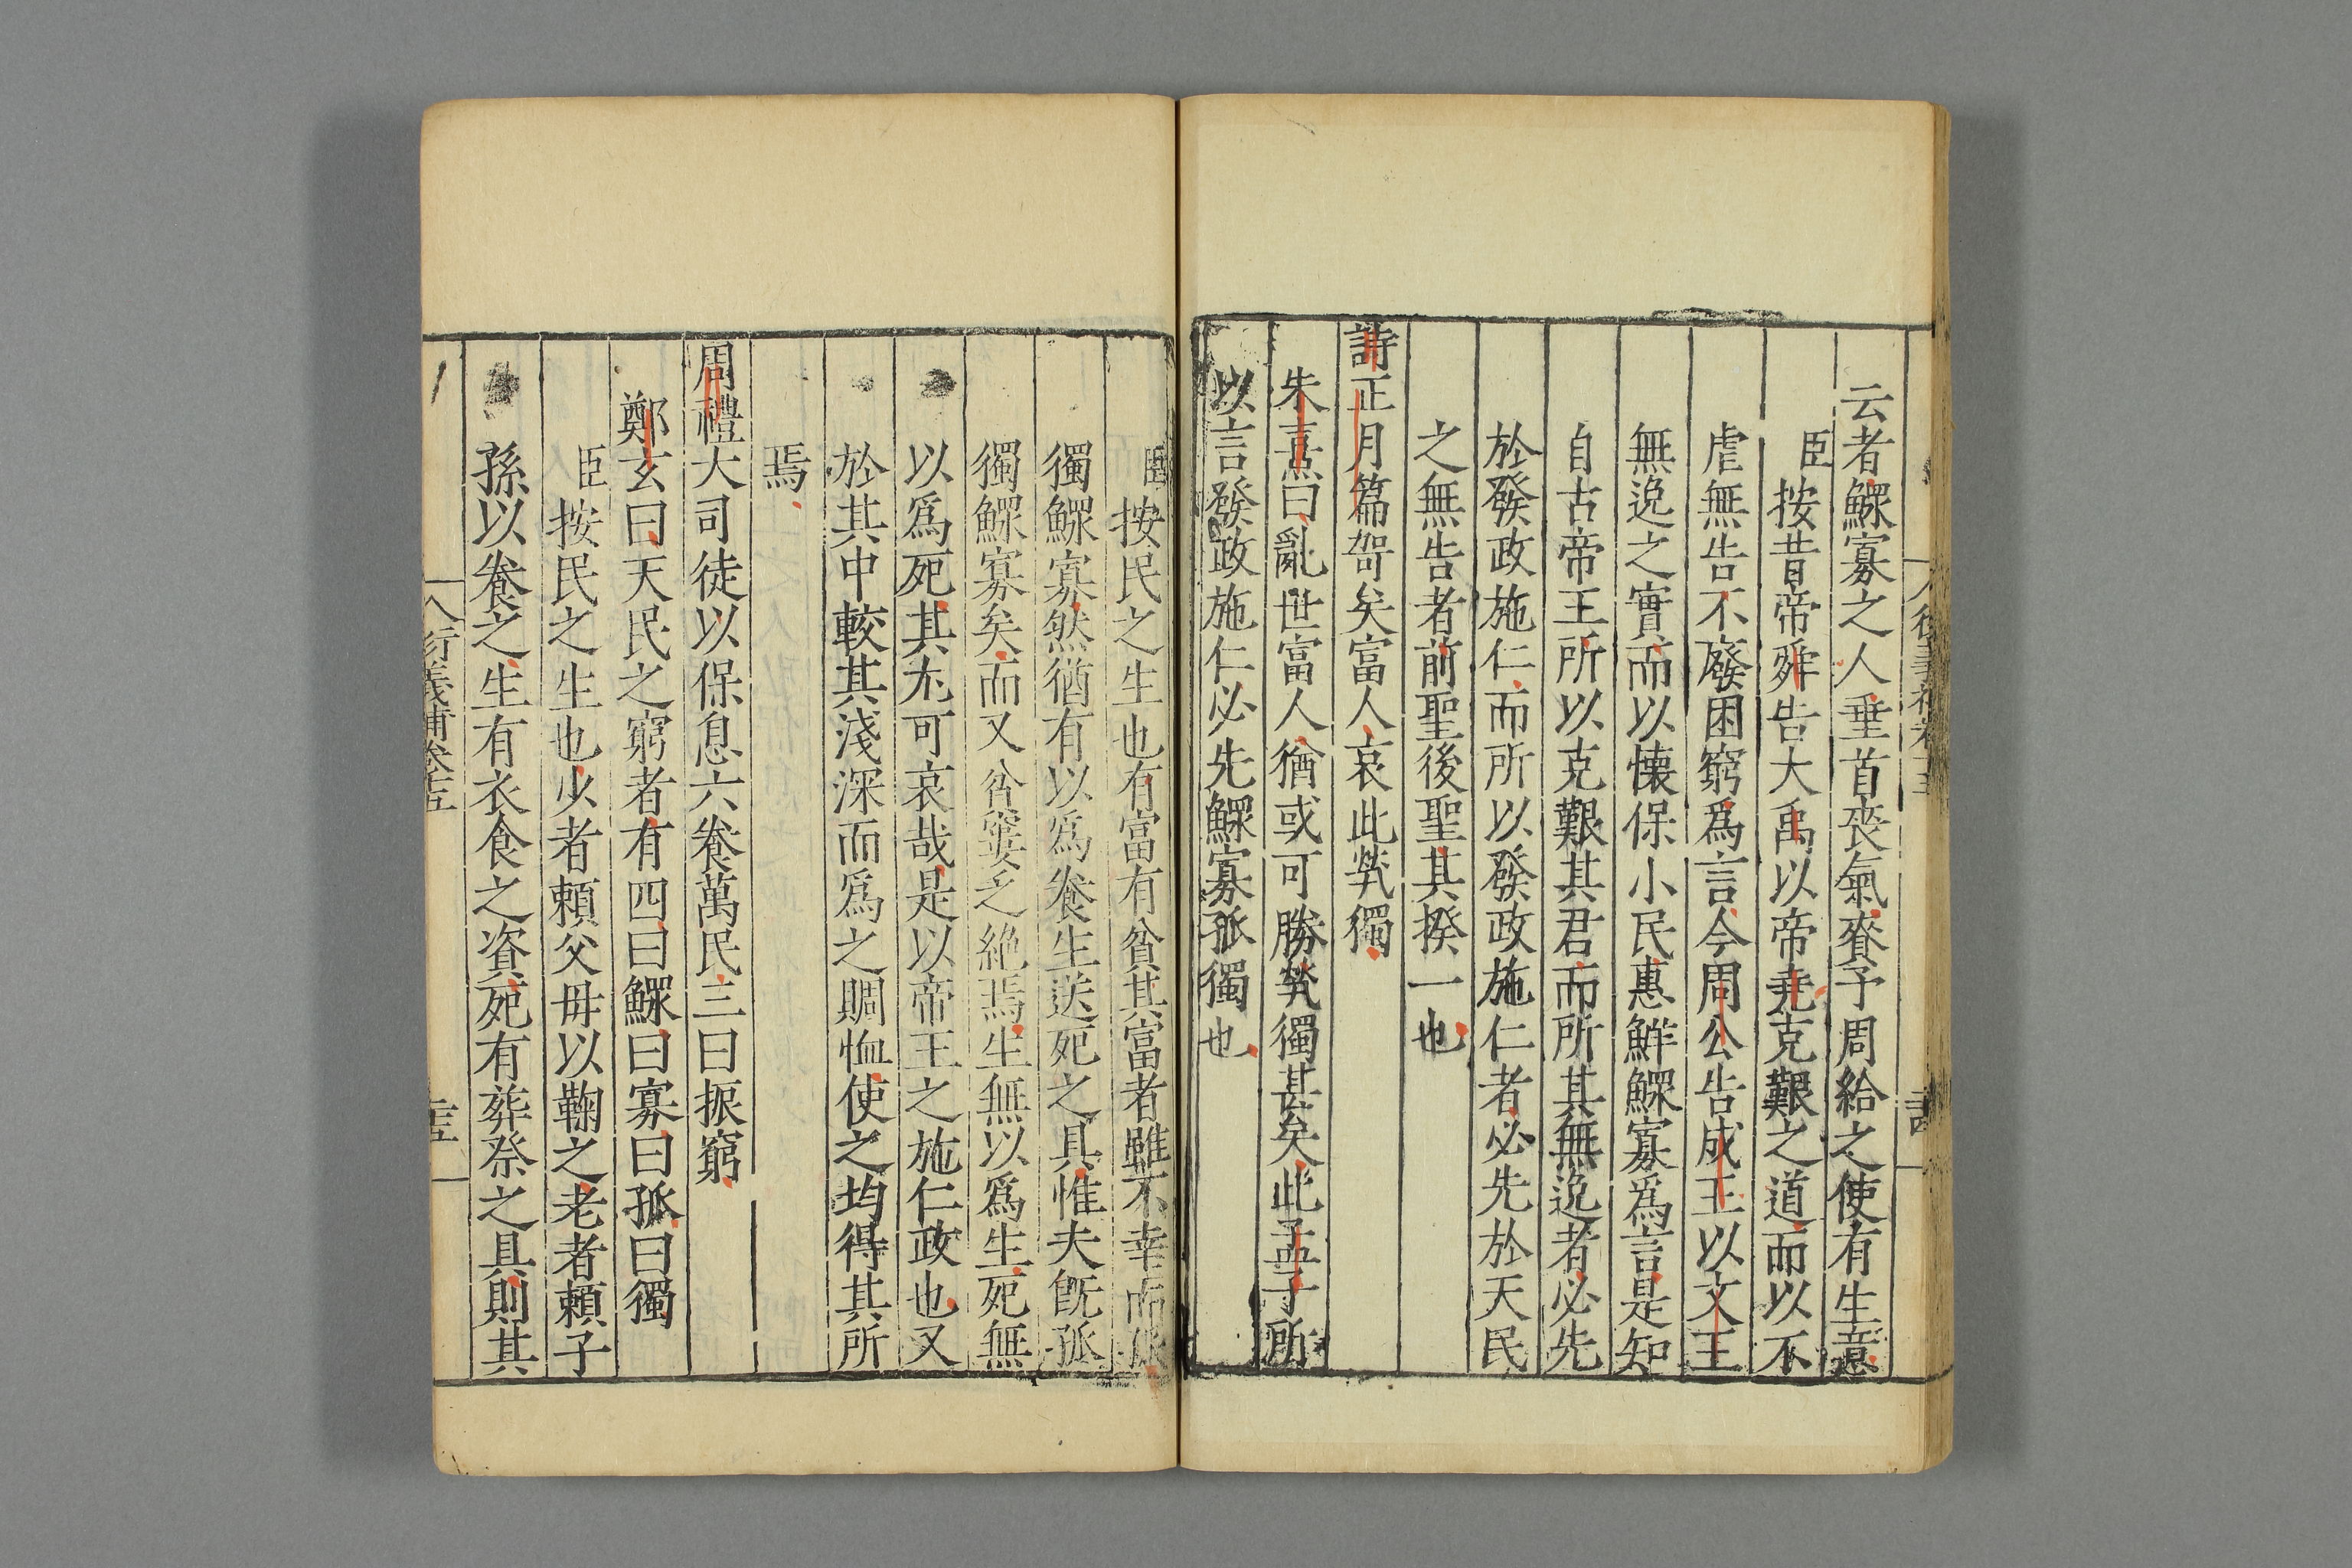 云者鰥寡之人垂首喪氣賚予周給之使有生意
臣按昔帝舜告大禹以帝堯克艱之道而以不
虐無告不廢困窮爲言今周公告成王以文王
無逸之實而以懷保小民惠鮮鰥寡爲言是知
自古帝王所以克艱其君而所其無逸者必先
於發政施仁而所以發政施仁者必先於天民
之無告者前聖後聖其揆一也
詩正月篇哿矣富人哀此煢獨
朱熹曰亂世富人猶或可勝煢獨甚矣此孟子所
以言發政施仁必先鰥寡孤獨也
臣按民之生也有富有貧其富者雖不幸而孤
獨鰥寡然猶有以爲養生送死之具惟夫旣孤
獨鰥寡矣而又貧窶乏絶焉生無以爲生死無
以爲死其尤可哀哉是以帝王之施仁政也又
於其中較其淺深而爲之賙恤使之均得其所
焉
周禮大司徒以保息六養萬民三曰振窮
鄭玄曰天民之窮者有四曰鰥曰寡曰孤曰獨
臣按民之生也少者賴父毋以鞠之老者賴子
孫以養之生有衣食之資死有葬祭之具則其
衍義補卷十五